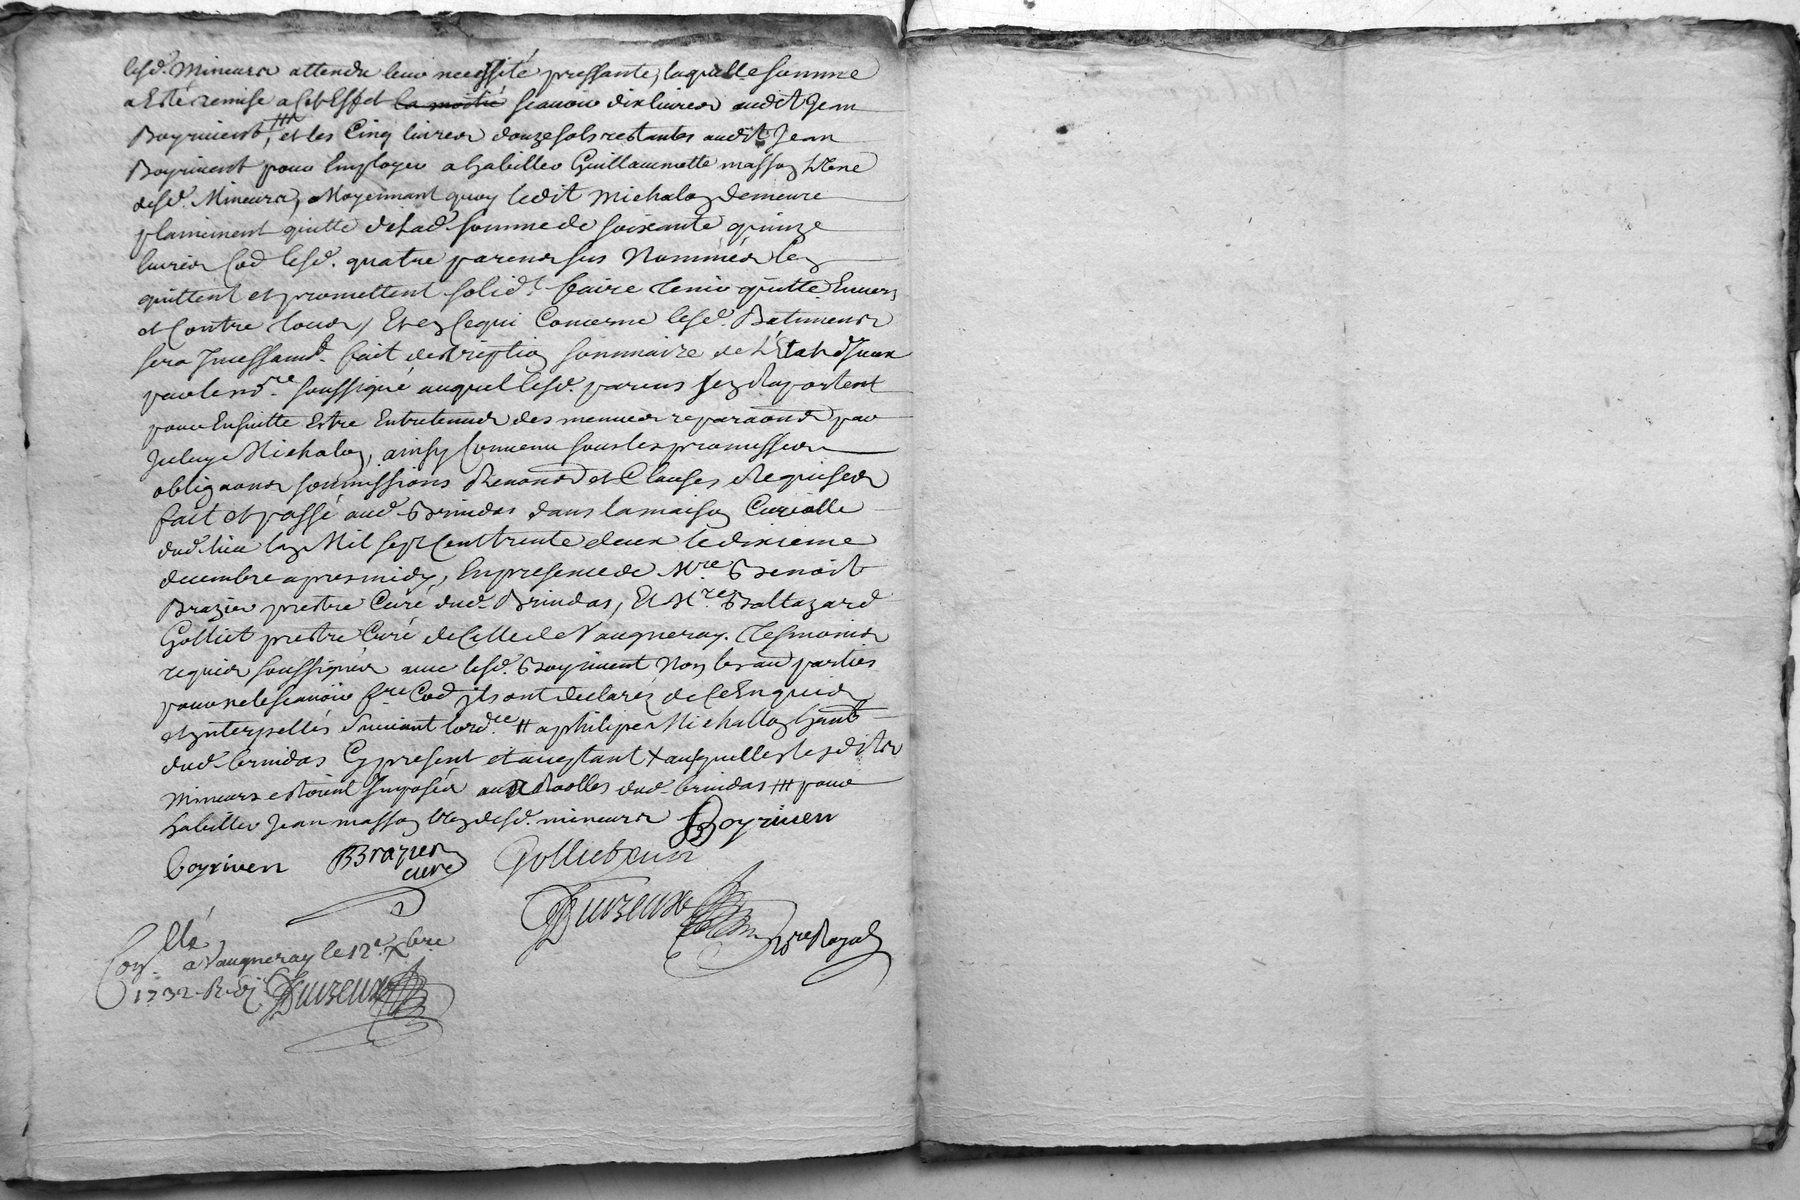 lesd. Mineurs attendu leur necessité pressante, laquelle somme
a Esté remise a cet Effet la moitié scavoir dix livres audit Jean
Boyrivent, ⧻ et les Cinq livres douze sols restantes audit Jean
Boyrivent pour Employer a habiller Guillaumette masson L'une
desd. Mineurs, Moyennant quoy ledit Michalon demeure
plainement quitte de lad. somme de soixante quinze
livres Cod lesd. quatre parens sus Nommés Len
quittent et promettent solidt. faire tenir quitte Envers
et Contre tous, Et en Cequi Concerne lesd. Batimens
sera Incessamt. fait description sommaire de L'Etat d'Iceux
par le nore. soussigné auquel lesd. parens sen Raportent
pour Ensuitte Estre Entretenus des menues reparaons par
Iceluy Michalon, ainsy Convenu sous les promesses
obligaons soumissions Renonons et Clauses Requises
fait et passé aud. Brindas dans la maison Curialle
dud. lieu Lan Mil sept Cent trente deux le dixieme
decembre apres midy, En presence de Mre. Benoist
Brazier prestre Curé dud. Brindas, Et Mre. Baltazard
Golliet prestre Curé de Celle de Vaugneray. tesmoins
requis soussignés avec lesd. Boyrivent Non les au. parties
pour ne le scavoir fre. Cod ils ont declarés de Ce Enquis
et Interpellés suivant Lordce. # a philipe Michallon hant.
dud. brindas Cy present et aceptant X ausquelles lesdits
Mineurs estoient Imposés aux Roolles dud. brindas ⧻ pour
habiller Jean masson Un desd. mineurs Boyriven
boyriven BBrazier Golliet curé
curé
Duizeux
nore Royal
Conllé. a Vaugneray le 12e. Xbre
1732. R. Duizeux